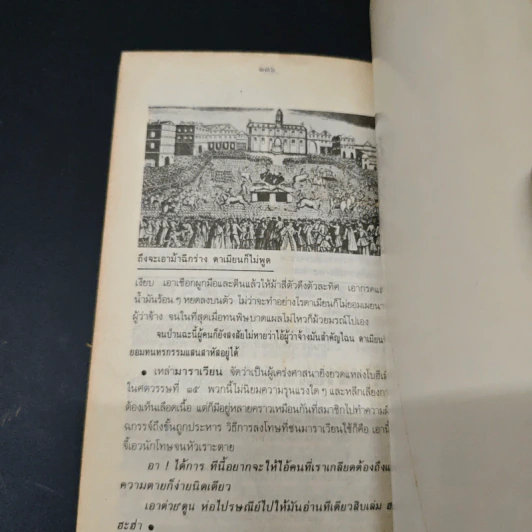 ๑๕๖
ถึงจะเอาม้าฉีกร่าง ดาเมียนก็ไม่พูด
เงียบ เอาเชือกผูกมือและตีนแล้วให้ม้าสี่ตัวดึงตัวละทิศ เอากรดและ
น้ำมันร้อน ๆ หยดลงบนตัว ไม่ว่าจะทำอย่างไรดาเมียนก็ไม่ยอมเผยนาม
ผู้ว่าจ้าง จนในที่สุดเมื่อทนพิษบาดแผลไม่ไหวก็ม้วยมรณ์ไปเอง
จนป่านฉะนี้ผู้คนก็ยังสงสัยไม่หายว่าไอ้ผู้ว่าจ้างมันสำคัญไฉน ดาเมียน
ยอมทนทรกรรมแสนสาหัสอยู่ได้
● เหล่ามาราเวียน จัดว่าเป็นผู้เคร่งศาสนายิ่งยวดแหล่งโบฮีเมีย
ในศตวรรษที่ ๑๕ พวกนี้ไม่นิยมความรุนแรงใด ๆ และหลีกเลี่ยง
ต้องเห็นเลือดเนื้อ แต่ก็มีอยู่หลายคราวเหมือนกันที่สมาชิกไปทำความ
ฉกรรจ์ถึงขั้นถูกประหาร วิธีการลงโทษที่ชนมาราเวียนใช้ก็คือ เอา
จี้เอวนักโทษจนหัวเราะตาย
อา ! ได้การ ทีนี้อยากจะให้ไอ้คนที่เราเกลียดต้องถึง
ความตายก็ง่ายนิดเดียว
เอาต่วยตูน ห่อไปรษณีย์ไปให้มันอ่านทีเดียวสิบเล่ม ฮ
ฮะฮ่า ●